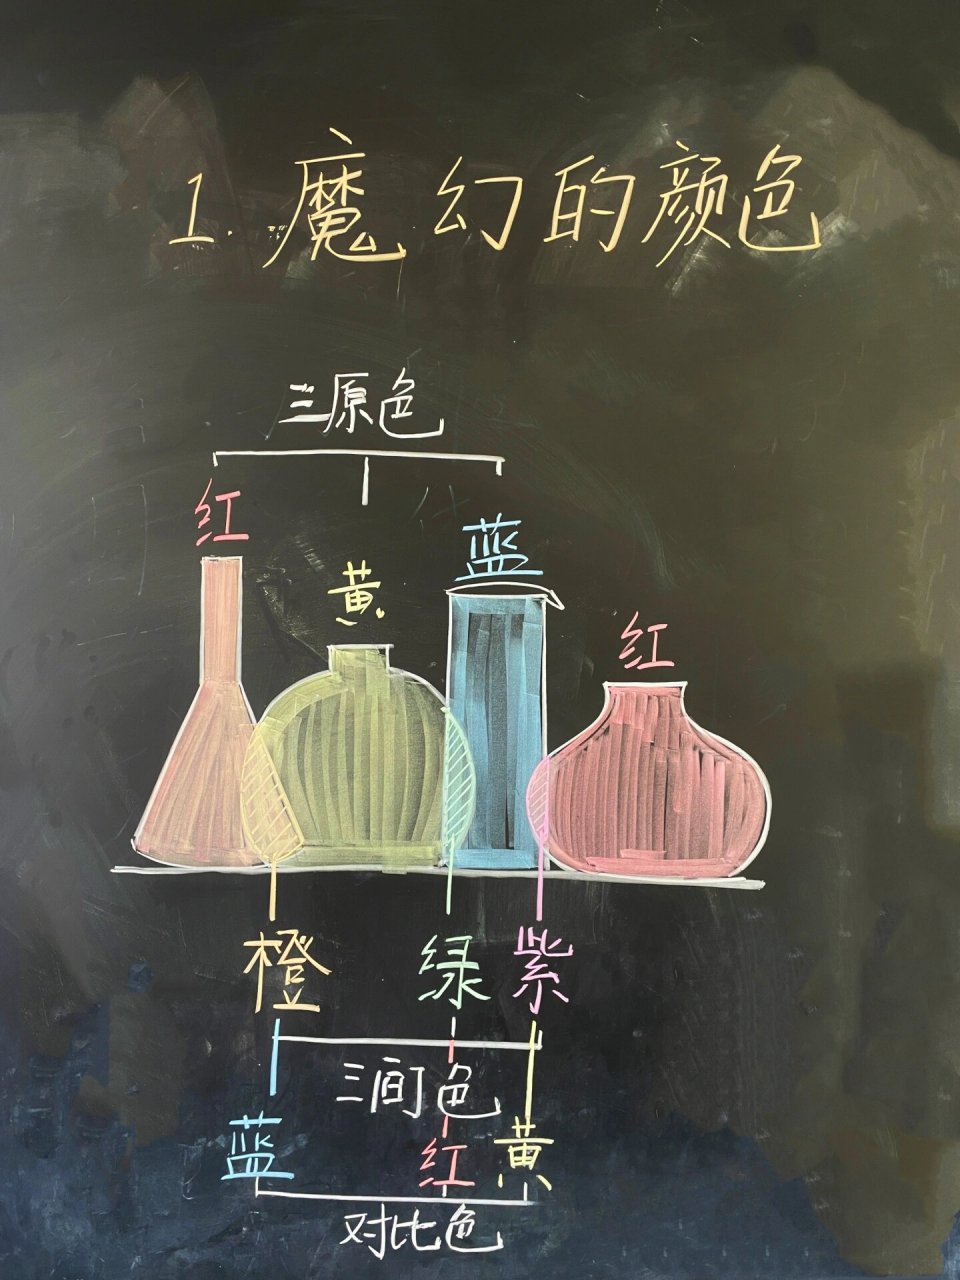 1. 魔幻的颜色
三原色
红
黄
蓝
红
橙 绿 紫
三间色
蓝 红 黄
对比色